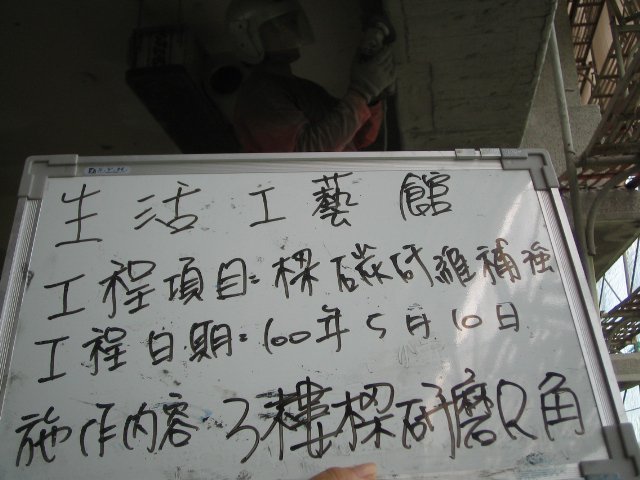 生活工藝館
工程項目:樑碳纤維補強
工程日期:100年5月10日
施作內容:3樓樑研磨R角